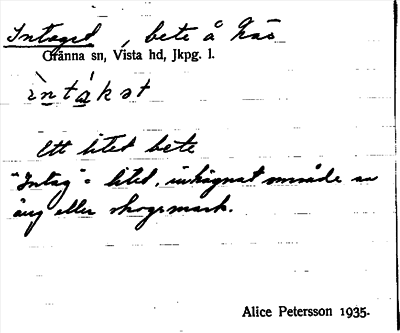 Intaget, bete å häs
Gränna sn, Vista hd, Jkpg. l.
ìntákət
Ett litet bete
"Intag" = litet, inhägnat område av
äng eller skogsmark.
Alice Petersson 1935-